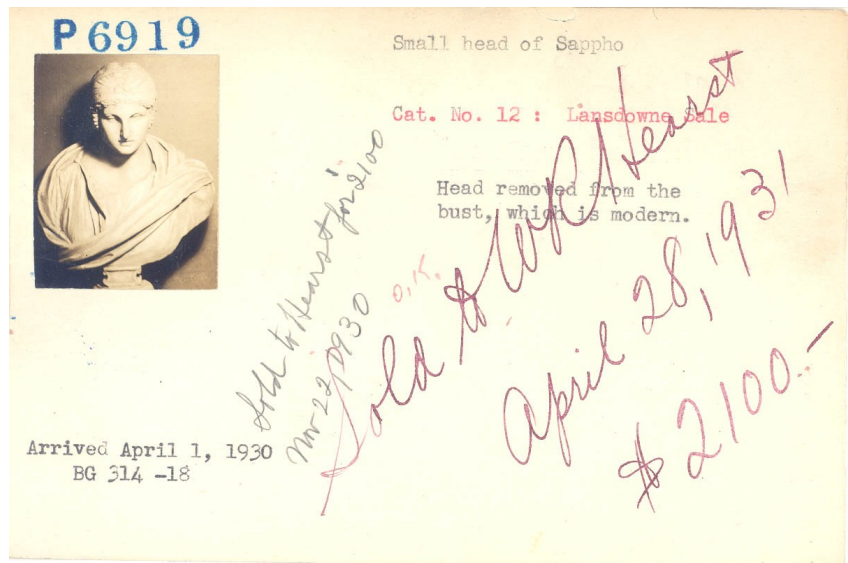 P6919
Small head of Sappho
Cat. No. 12 : Lansdowne Sale
Head removed from the
bust, which is modern.
Sold to Hearst for 2100
Nov 22, 1930
O.K.
Sold to W R Hearst
April 28, 1931
$2100.-
Arrived April 1, 1930
BG 314 -18